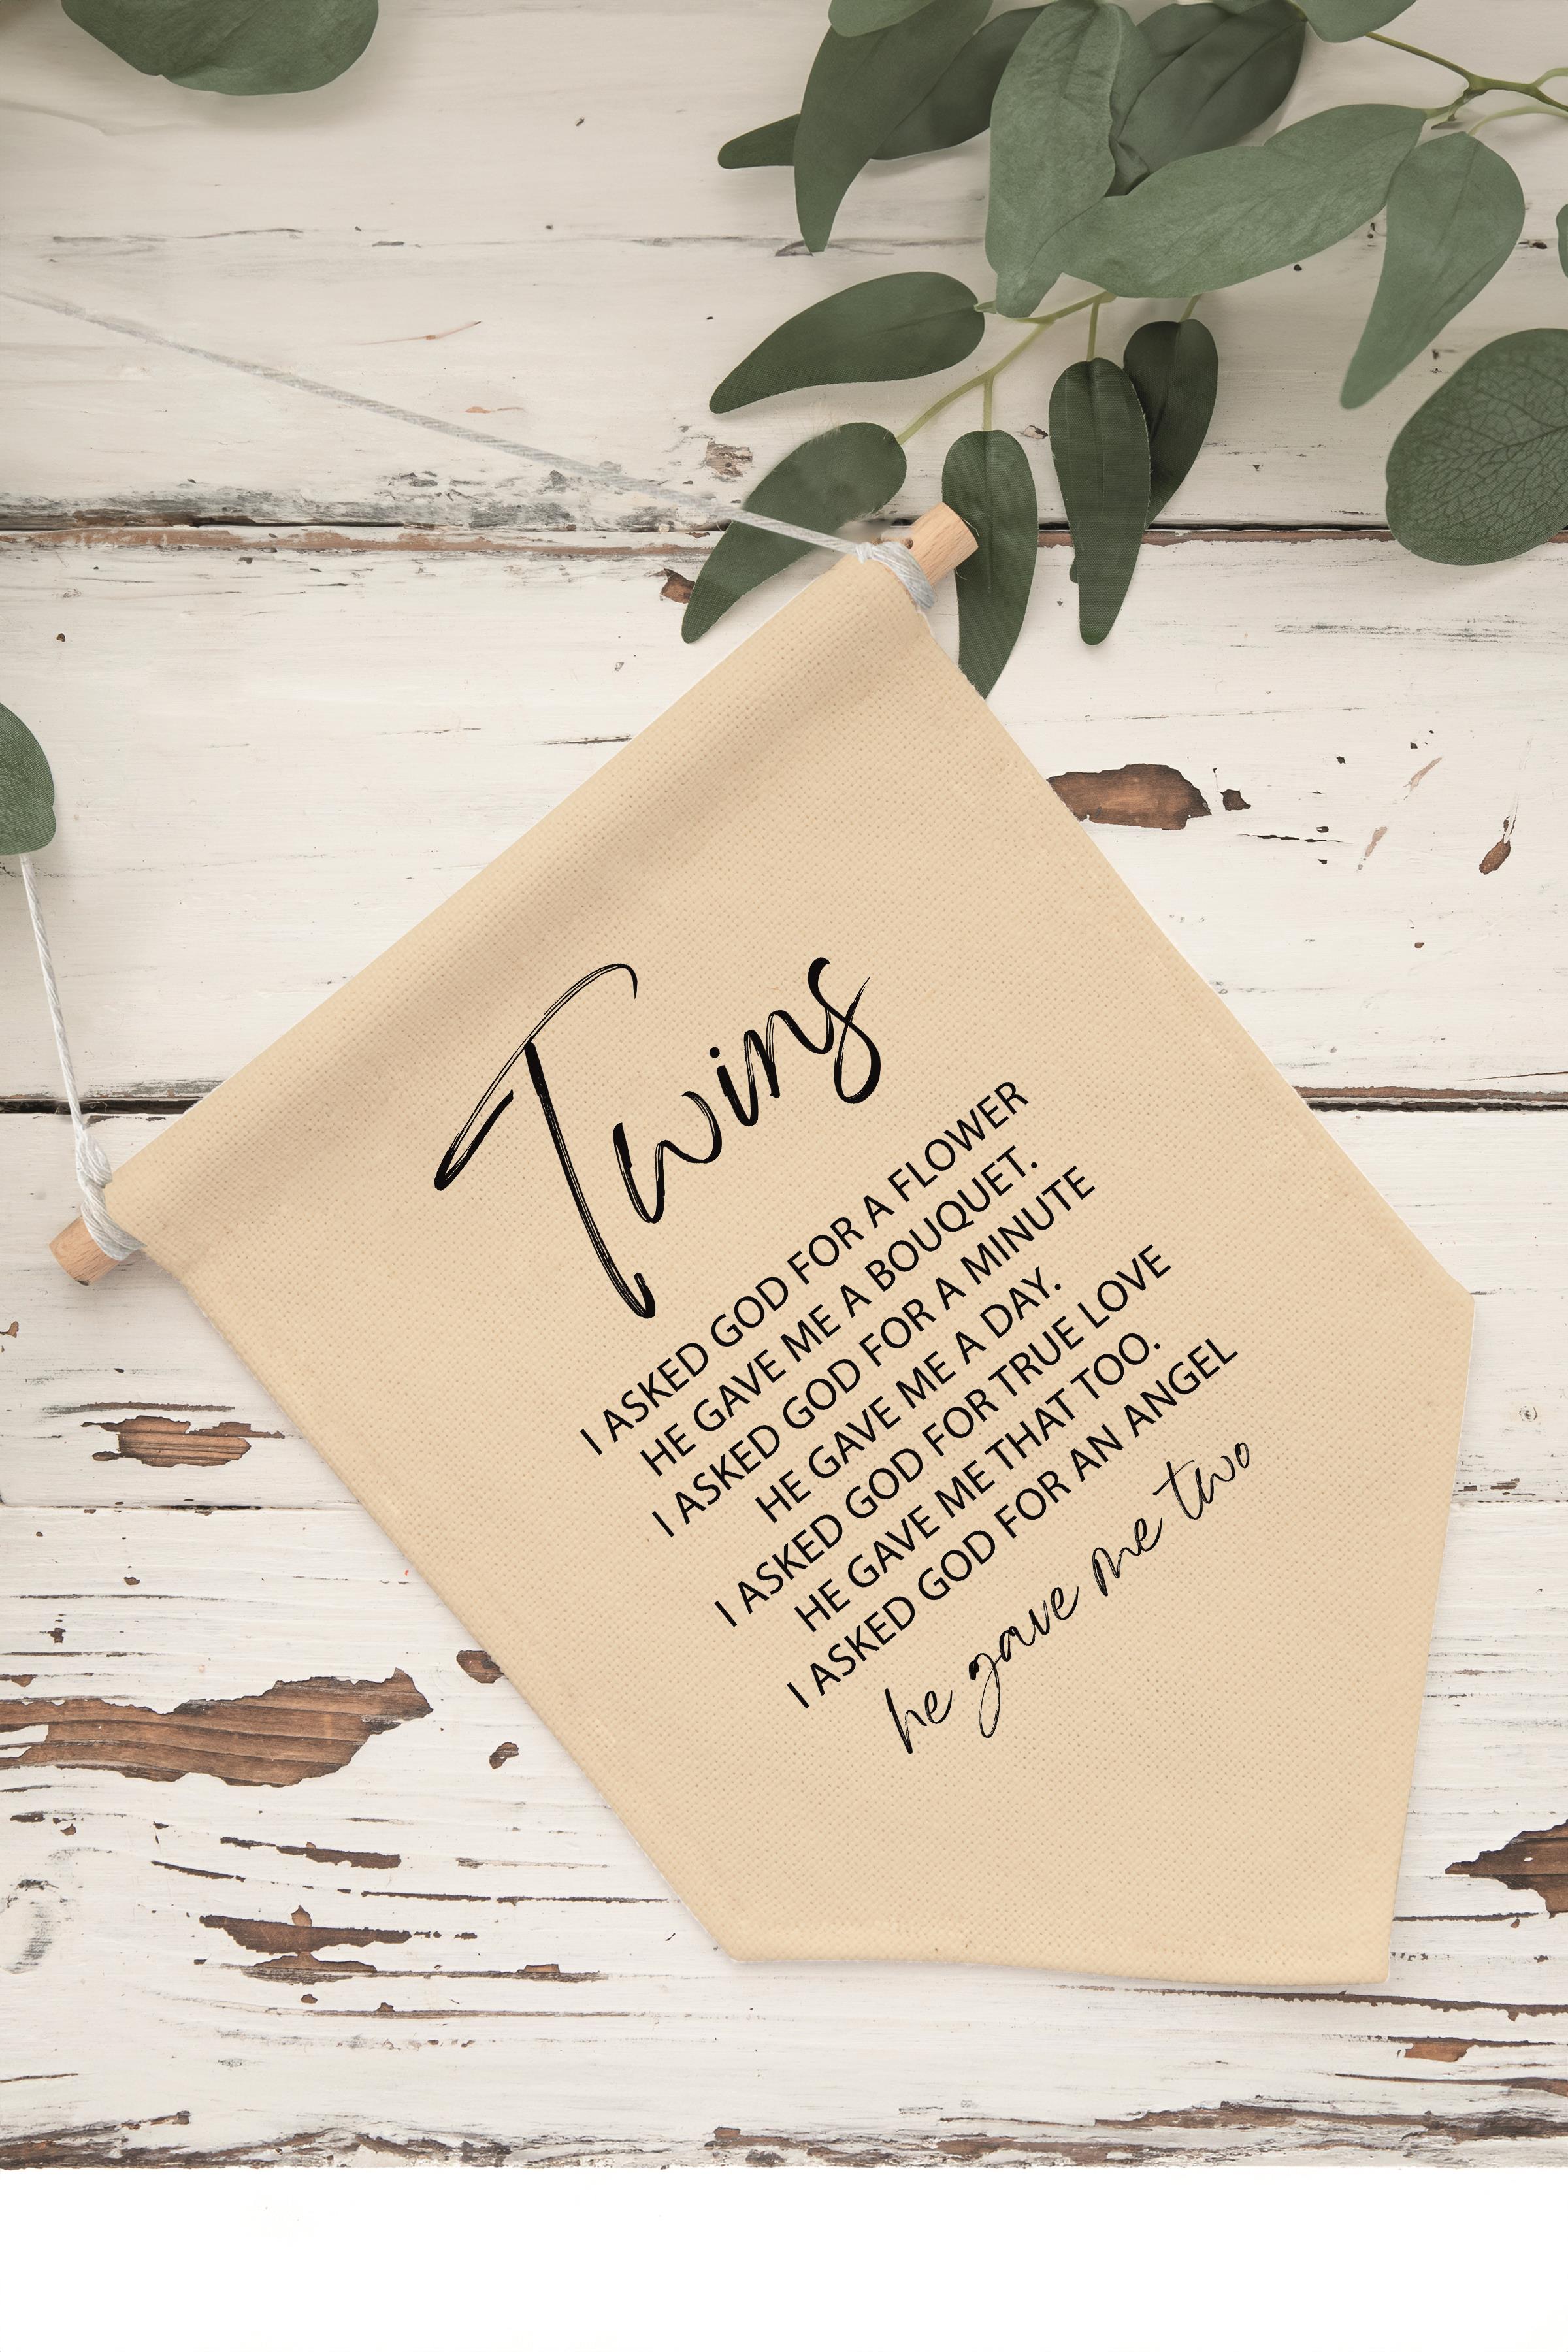 Twins
I ASKED GOD FOR A FLOWER
HE GAVE ME A BOUQUET.
I ASKED GOD FOR A MINUTE
HE GAVE ME A DAY.
I ASKED GOD FOR TRUE LOVE
HE GAVE ME THAT TOO.
I ASKED GOD FOR AN ANGEL
he gave me two